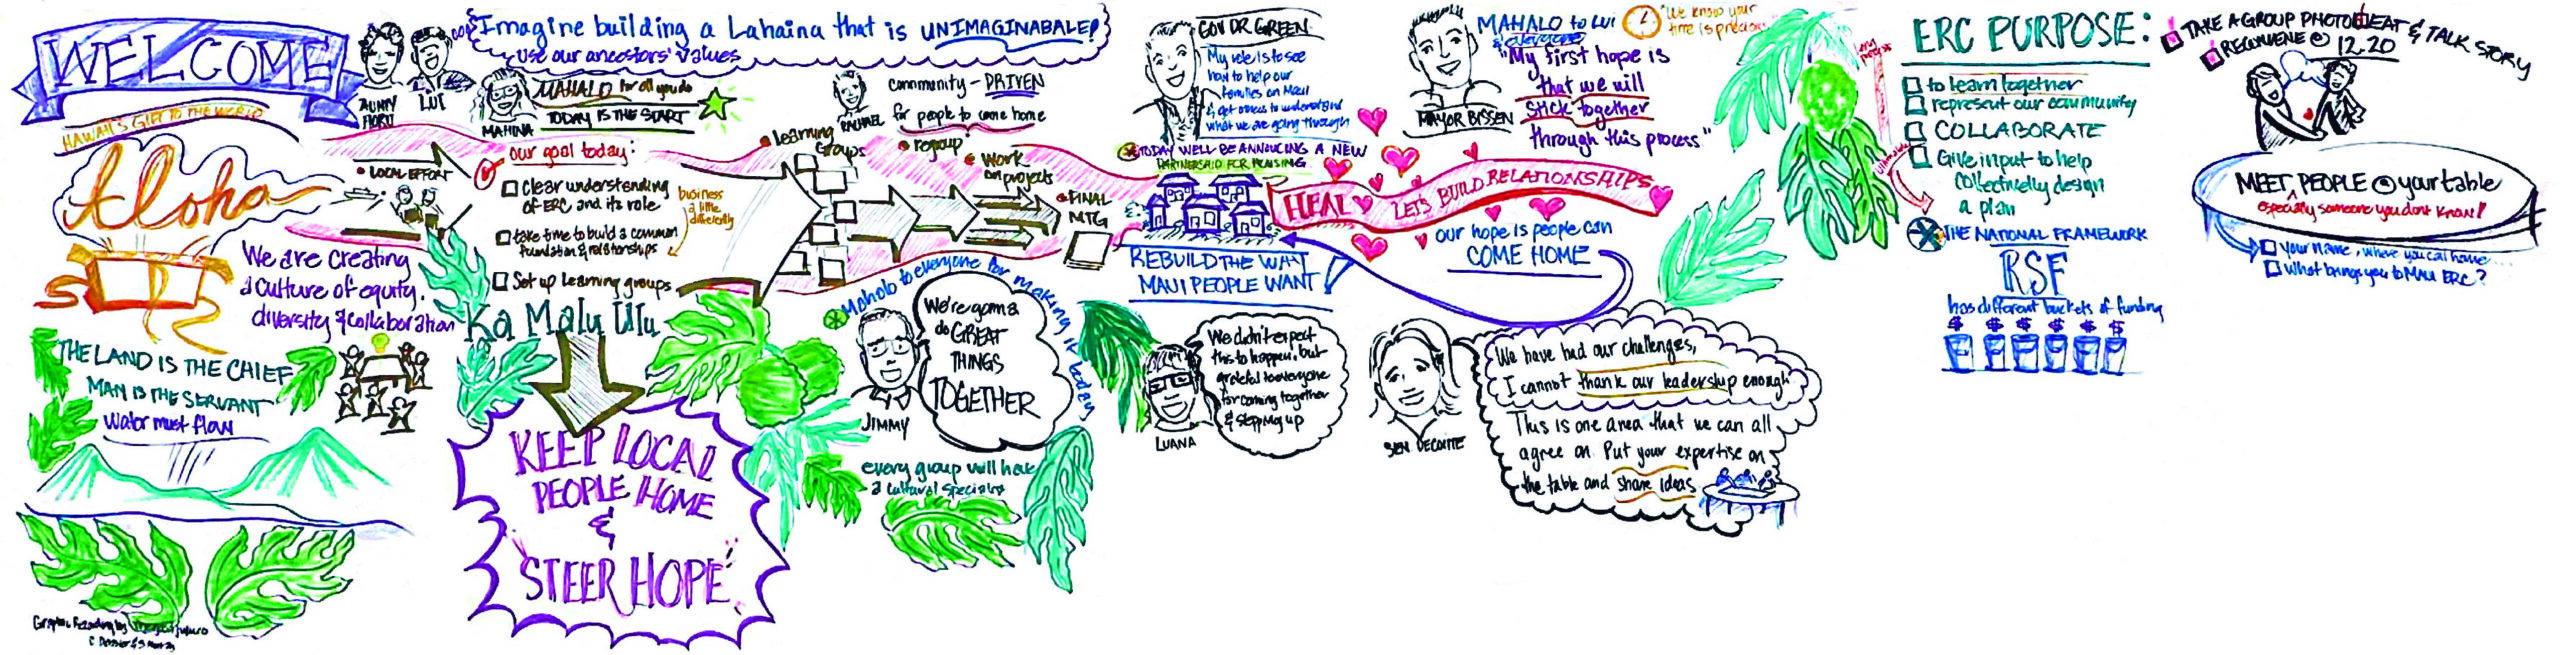 WELCOME
HAWAII'S GIFT TO THE WORLD
Aloha
We are creating
a culture of equity,
diversity & collaboration
THE LAND IS THE CHIEF
MAN IS THE SERVANT
Water must flow
Graphic Recording by
AUNTY
LUI
Imagine building a Lahaina that is UNIMAGINABALE!
Use our ancestors' values
MAHINA
MAHALO for all you do
TODAY IS THE START
LOCAL EFFORT
our goal today:
clear understanding
of ERC and its role
take time to build a common
foundation & relationships
Set up learning groups
business
a little
differently
Ka Malu Ulu
KEEP LOCAL
PEOPLE HOME
&
STEER HOPE
RACHAEL
community - DRIVEN
for people to come home
learning
Groups
regroup
Work
on projects
FINAL
MTG
Mahalo to everyone for making it today
JIMMY
We're gonna
do GREAT
THINGS
TOGETHER
every group will have
a cultural specialist
GOV DR GREEN
My role is to see
how to help our
families on Maui
& get others to understand
what we are going through
TODAY WE'LL BE ANNOUCING A NEW
PARTNERSHIP FOR HOUSING
REBUILD THE WAY
MAUI PEOPLE WANT
HEAL
LET'S BUILD RELATIONSHIPS
our hope is people can
COME HOME
LUANA
We didn't expect
this to happen, but
grateful to everyone
for coming together
& stepping up
MAYOR BISSEN
MAHALO to LUI
& everyone
"We know your
time is precious"
"My first hope is
that we will
stick together
through this process"
SEN DECOITE
We have had our challenges,
I cannot thank our leadership enough
This is one area that we can all
agree on. Put your expertise on
the table and share ideas
ERC PURPOSE:
to learn together
represent our community
COLLABORATE
Give input to help
collectively design
a plan
THE NATIONAL FRAMEWORK
RSF
has different buckets of funding
$ $ $ $ $ $
TAKE A GROUP PHOTO EAT & TALK STORY
RECONVENE @ 12.20
MEET PEOPLE @ your table
especially someone you dont know!
your name, where you call home...
what brings you to Maui ERC?